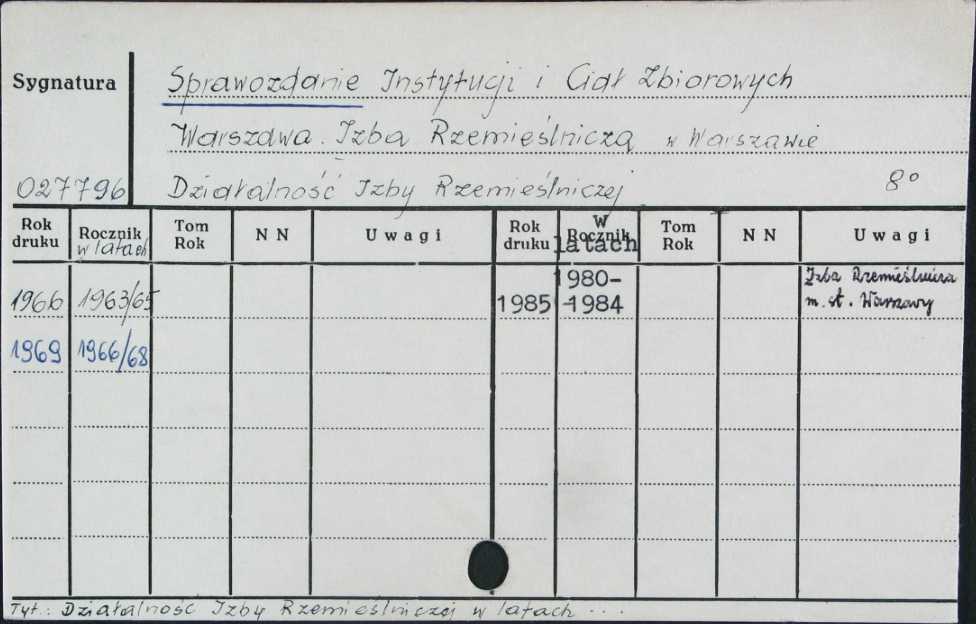 Sygnatura
Sprawozdanie Instytucji i Ciał Zbiorowych
Warszawa. Izba Rzemieślnicza w Warszawie
027796 Działalność Izby Rzemieślniczej 8°
Rok druku Rocznik w latach Tom Rok N N Uwagi Rok druku W Rocznik latach Tom Rok N N Uwagi
1966 1963/65 1985 1980-1984 Izba Rzemieślnicza
m. st. Warszawy
1969 1966/68
Tyt.: Działalność Izby Rzemieślniczej w latach ...